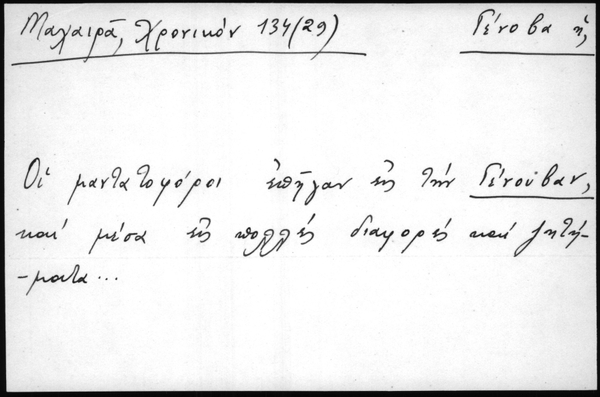 Μαχαιρᾶ, Χρονικόν 134(29) Γένοβα ἡ,
Οἱ μαντατοφόροι ἐπῆγαν εἰς τὴν Γένουβαν,
καὶ μέσα εἰς πολλὲς διαφορὲς καὶ ζητή-
-ματα...